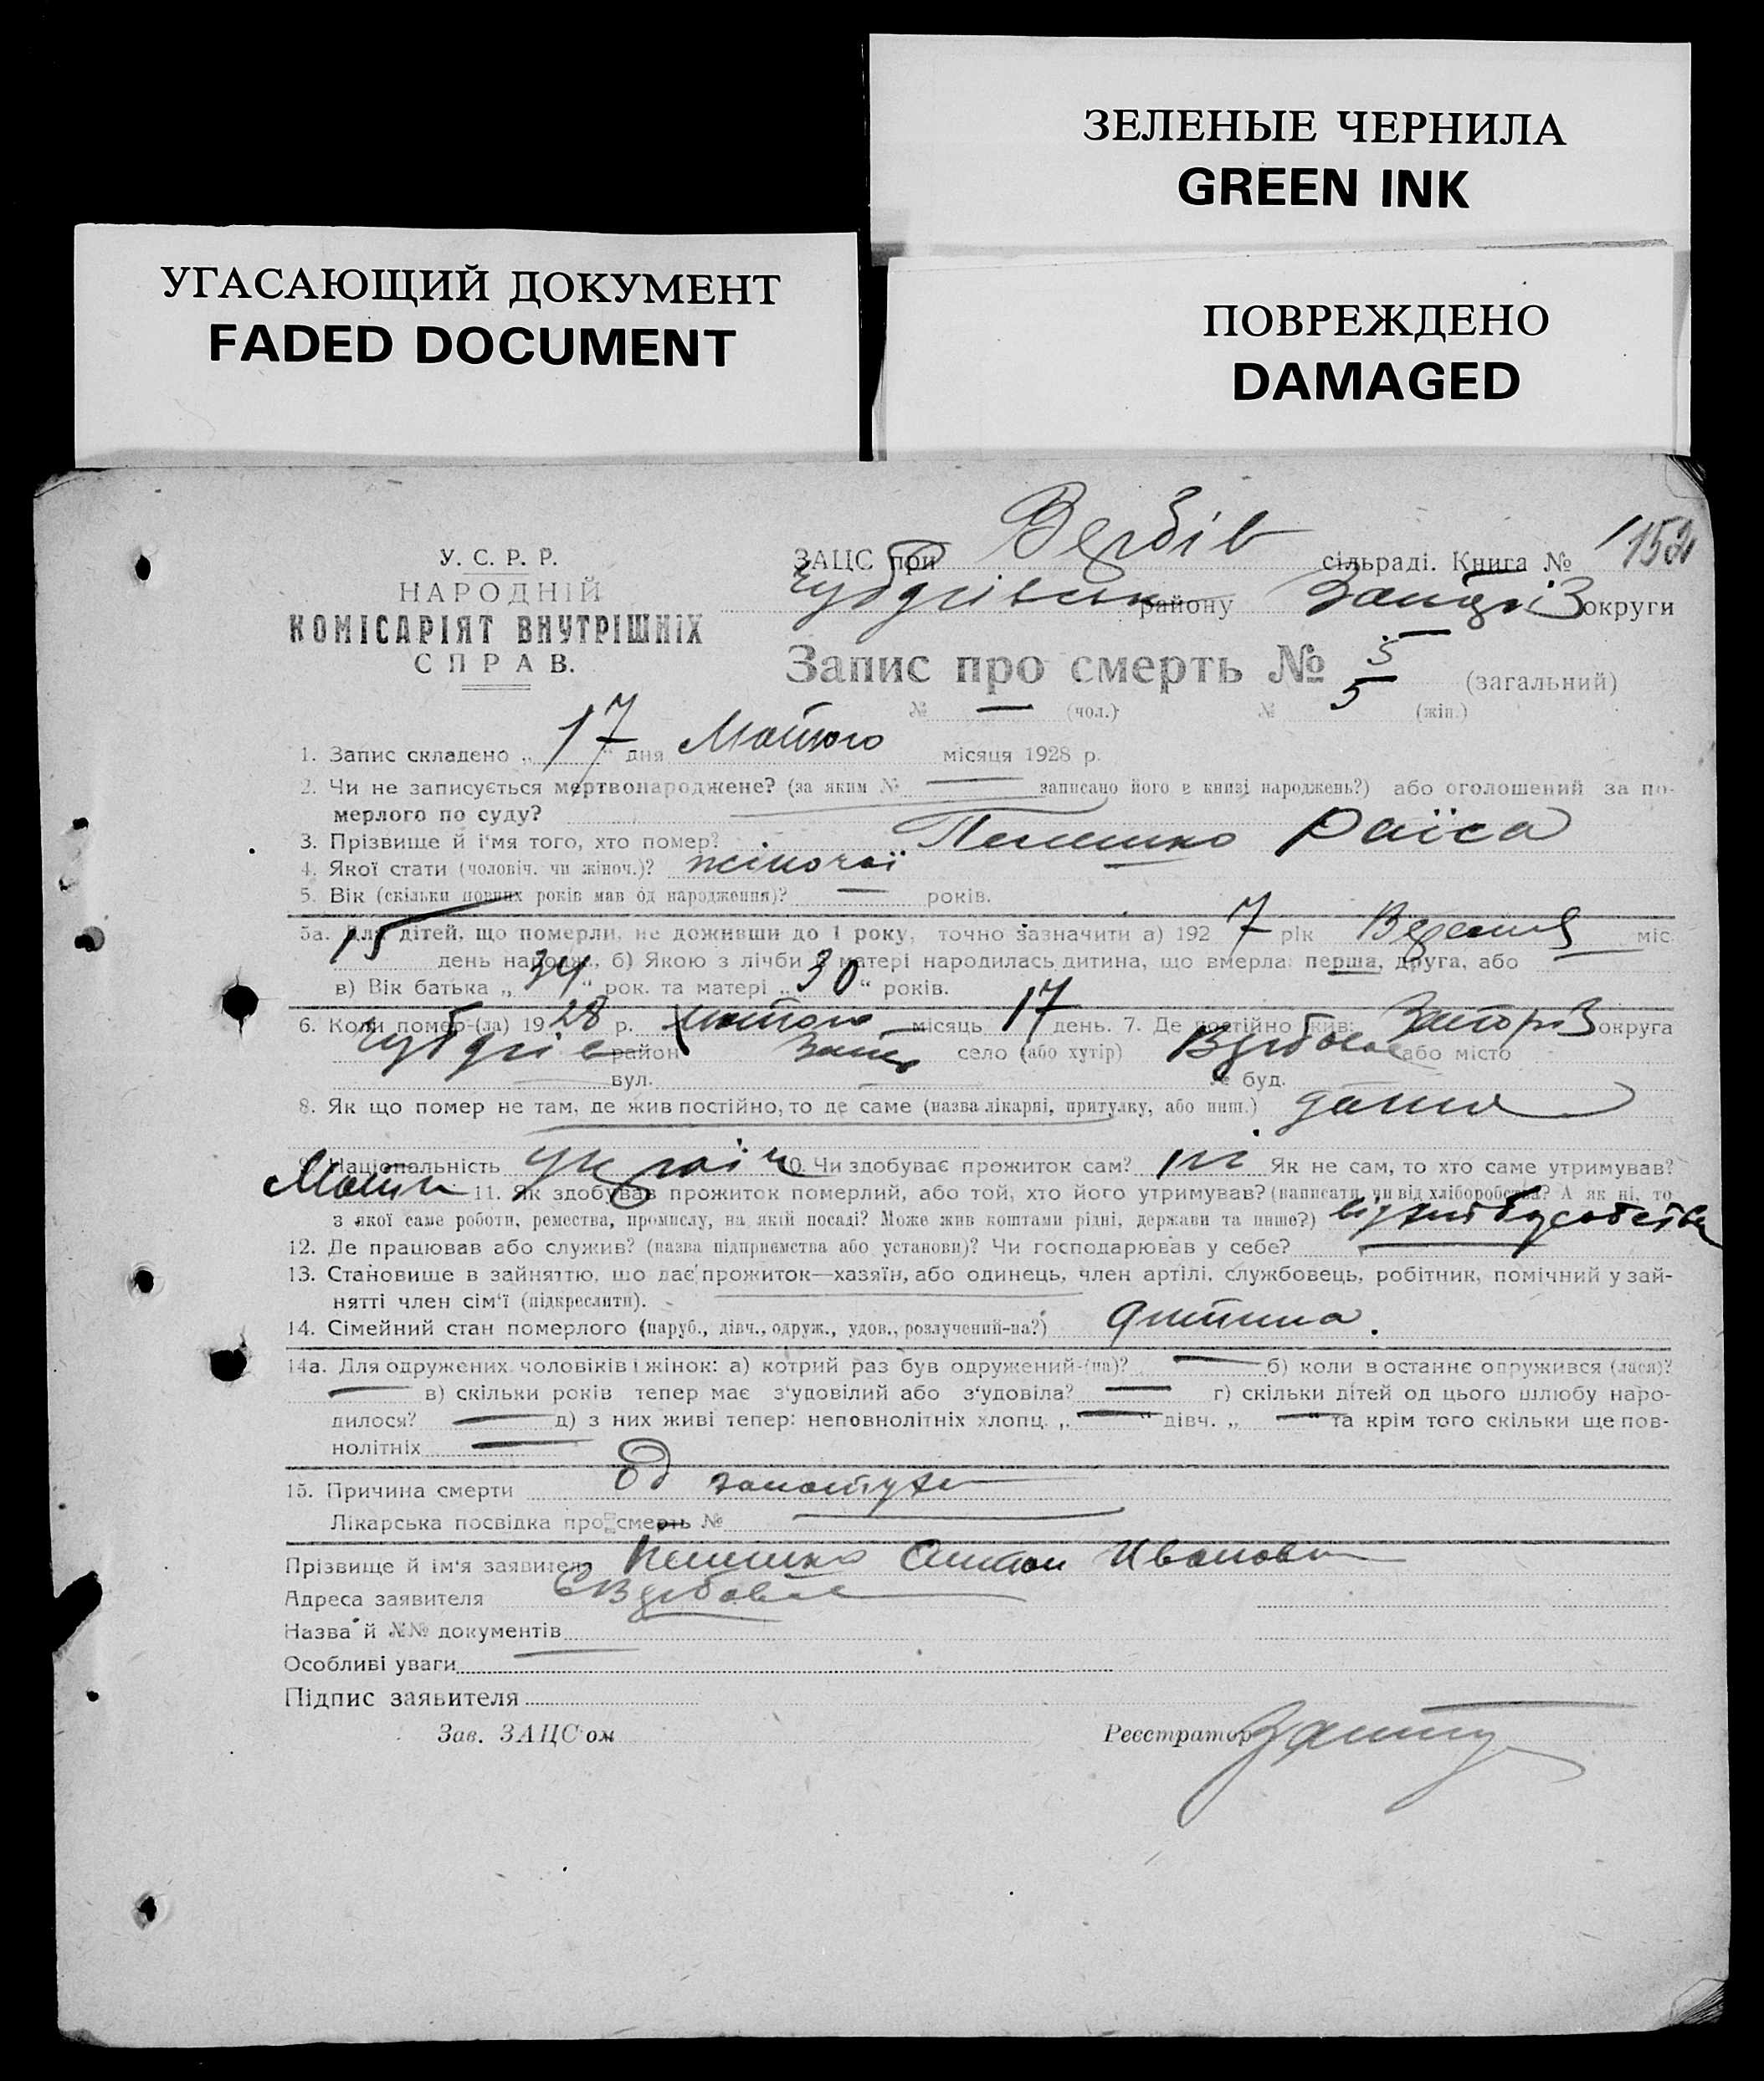 ЗЕЛЕНЫЕ ЧЕРНИЛА
GREEN INK
УГАСАЮЩИЙ ДОКУМЕНТ
FADED DOCUMENT
ПОВРЕЖДЕНО
DAMAGED
У. С. Р. Р.
НАРОДНІЙ
КОМІСАРІЯТ ВНУТРІШНІХ
СПРАВ.
ЗАЦС при Вербів сільраді. Книга № 152
району округи
Запис про смерть № 5 (загальний)
№ — (чол.) № 5 (жін.)
1. Запис складено „ 17 “ дня Лютого місяця 1928 р.
2. Чи не записується мертвонароджене? (за яким № — записано його в книзі народжень?) або оголошений за по-
мерлого по суду?
3. Прізвище й і'мя того, хто помер? Раїса
4. Якої стати (чоловіч. чи жіноч.)? жіночої
5. Вік (скільки повних років мав од народження)? — років.
5а. Для дітей, що померли, не доживши до 1 року, точно зазначити а) 192 7 рік міс.
15 день народж., б) Якою з лічби у матері народилась дитина, що вмерла: перша, друга, або
в) Вік батька „ 34 “ рок. та матері „ 30 “ років.
6. Коли помер-(ла) 19 28 р. лютого місяць 17 день. 7. Де постійно жив: Запоріз округа
район село (або хутір) Вербове або місто
— вул. — № буд.
8. Як що помер не там, де жив постійно, то де саме (назва лікарні, притулку, або инш.) дома
9. Національність україн 10. Чи здобуває прожиток сам? ні Як не сам, то хто саме утримував?
11. Як здобував прожиток померлий, або той, хто його утримував? (написати, чи від хліборобства? А як ні, то
з якої саме роботи, ремества, промислу, на якій посаді? Може жив коштами рідні, держави та инше?) від хліборобства
12. Де працював або служив? (назва підприємства або установи)? Чи господарював у себе? —
13. Становище в зайняттю, що дає прожиток—хазяїн, або одинець, член артілі, службовець, робітник, помічний у зай-
нятті член сім'ї (підкреслити).
14. Сімейний стан померлого (паруб., дівч., одруж., удов., розлучений-на?) дитина.
14а. Для одружених чоловіків і жінок: а) котрий раз був одружений-(на)? — б) коли востаннє опружився (лася)?
— в) скільки років тепер має з'удовілий або з'удовіла? — г) скільки дітей од цього шлюбу наро-
дилося? — д) з них живі тепер: неповнолітніх хлопц. „ — “ дівч. „ — “ та крім того скільки ще пов-
нолітніх —
15. Причина смерти Од
Лікарська посвідка про смерть № —
Прізвище й ім'я заявителя Антон Иванови
Адреса заявителя С Вербове
Назва й №№ документів —
Особливі уваги
Підпис заявителя
Зав. ЗАЦС'ом Реєстратор